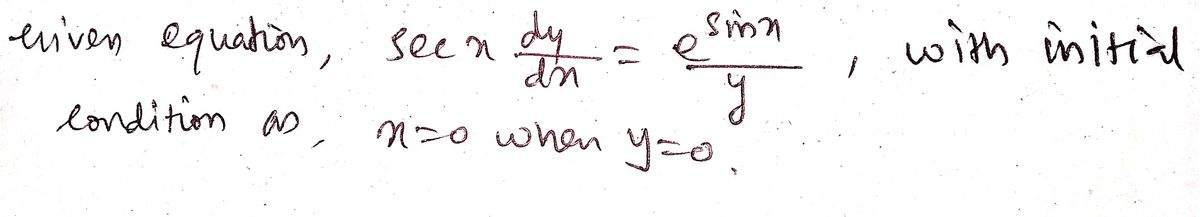 Given equation, sec x dy/dx = e^sinx/y, with initial
condition as, x=0 when y=0.